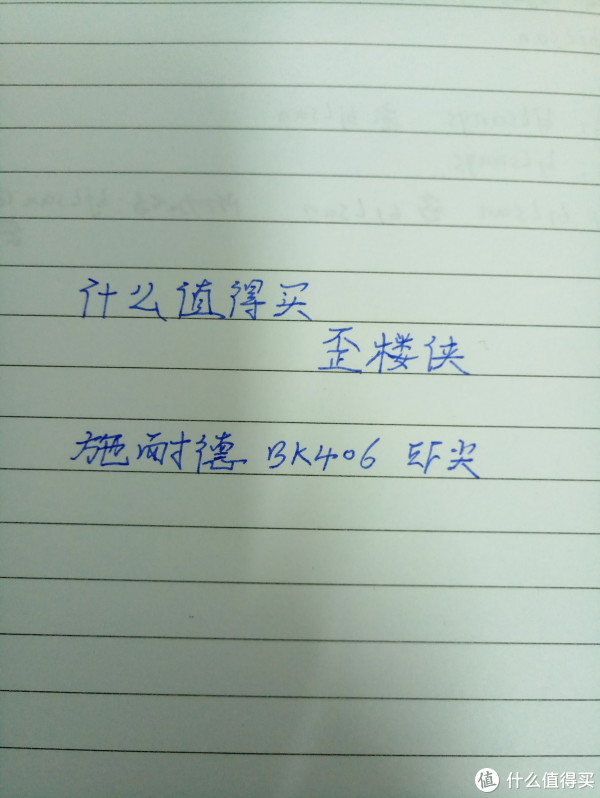 什么值得买
歪楼侠
施耐德 BK406 EF尖
值 什么值得买